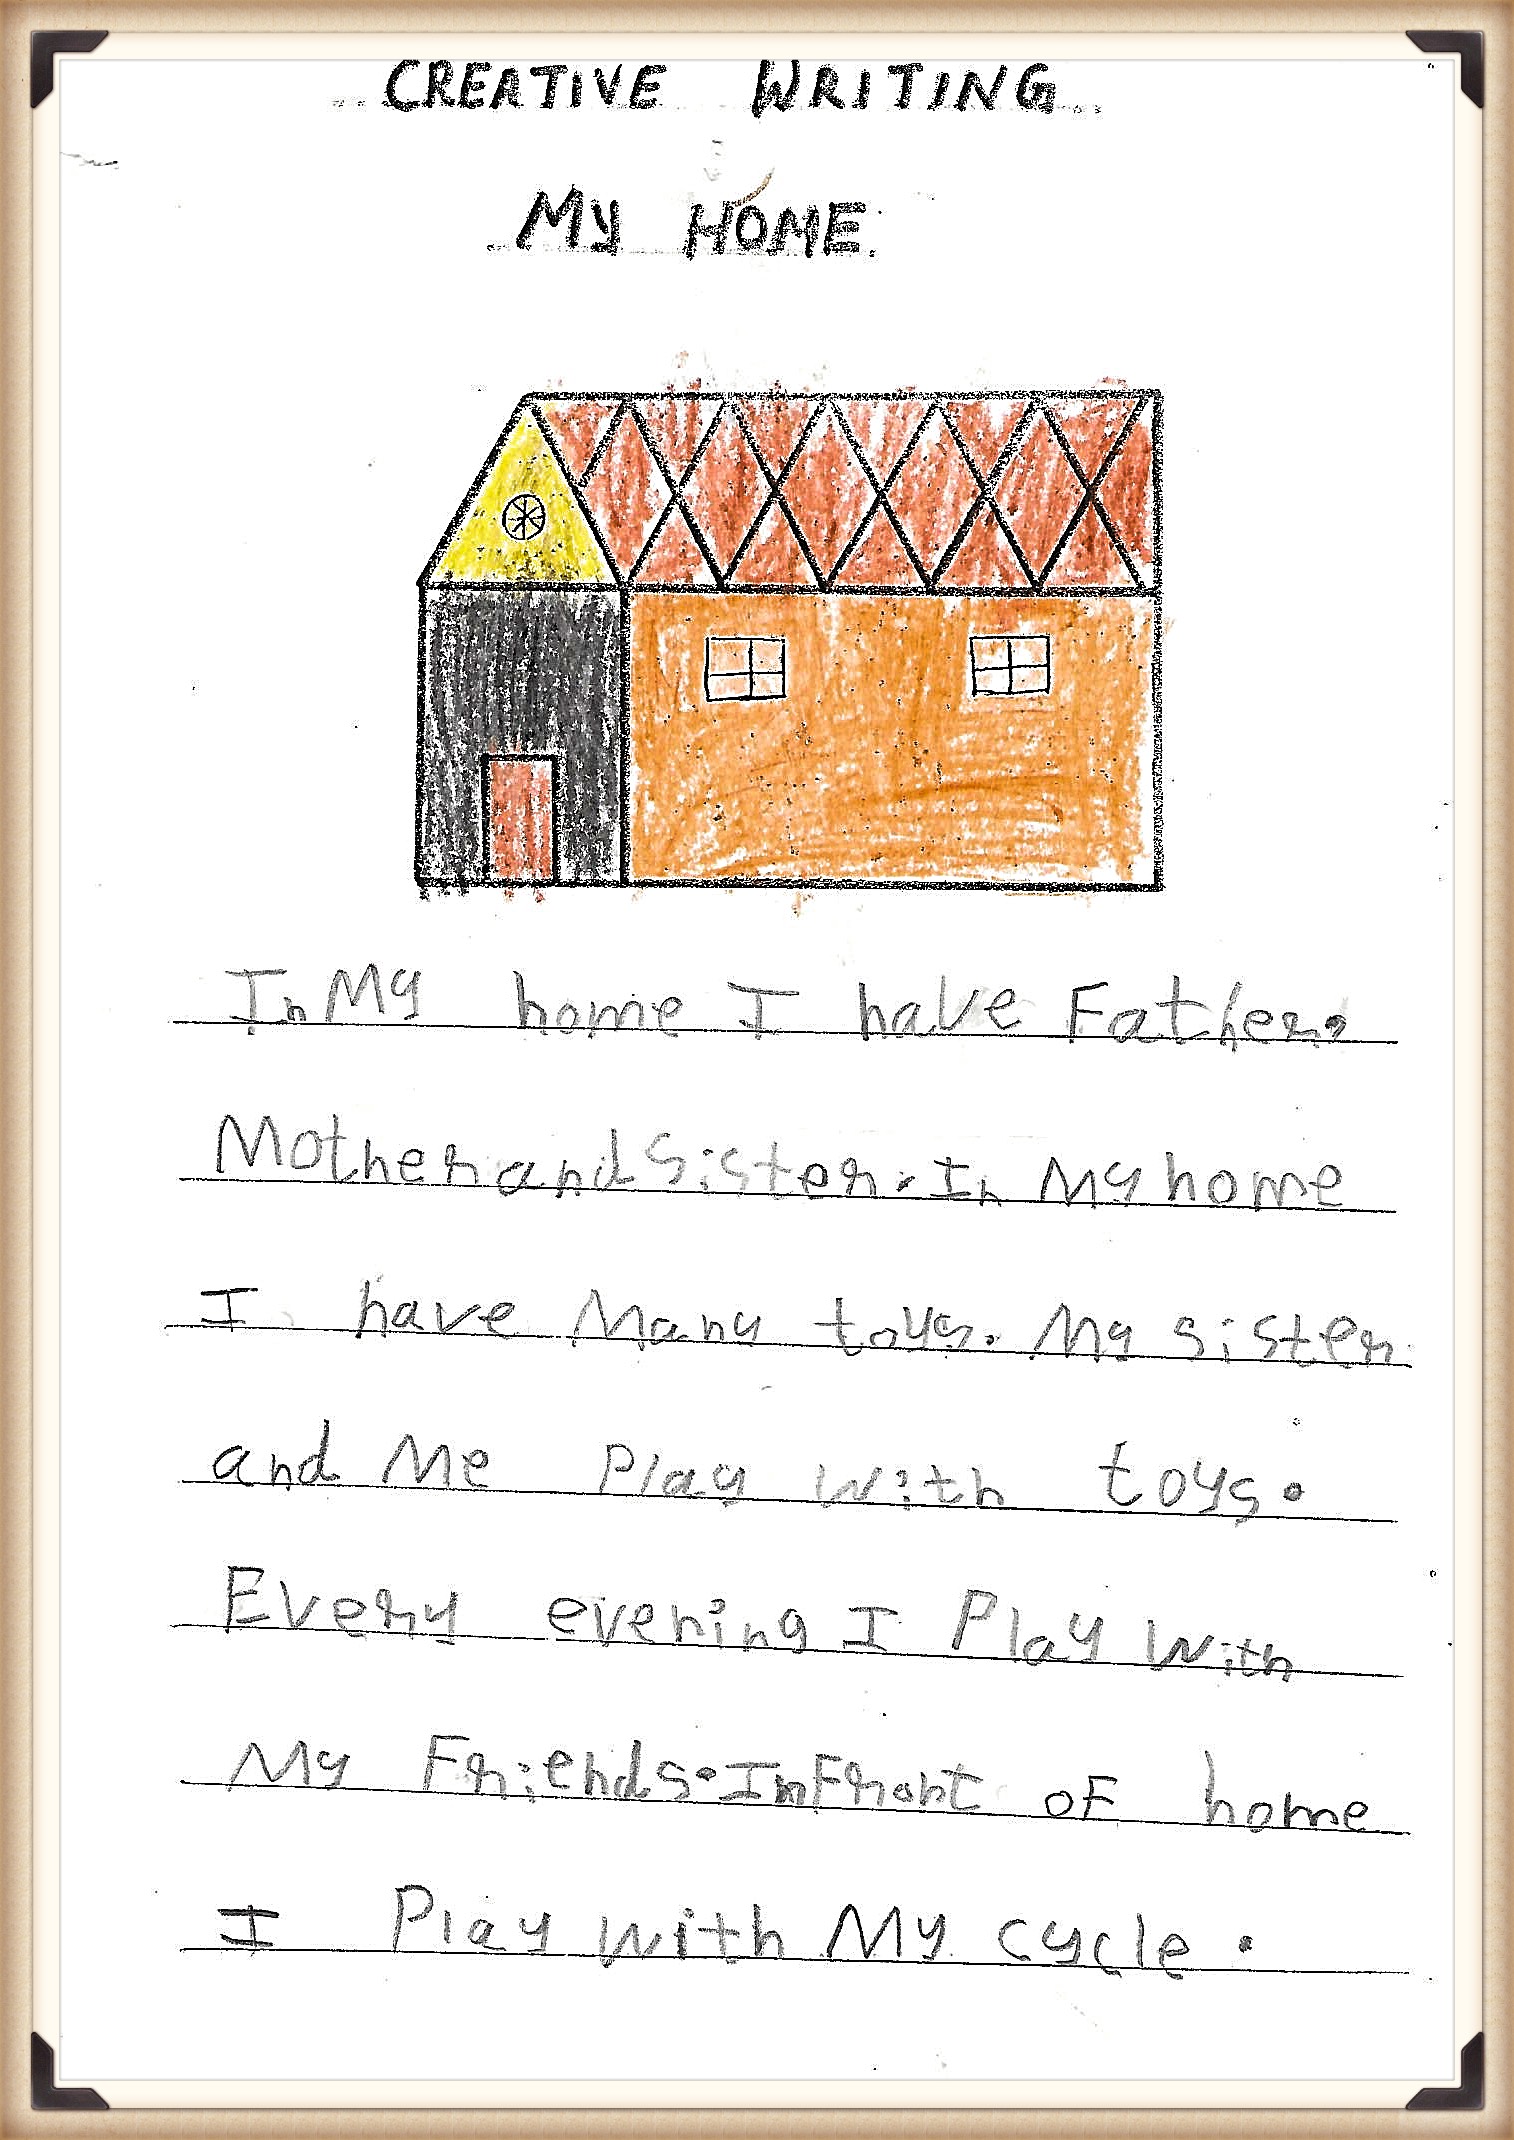 CREATIVE WRITING
MY HOME.
In My home I have Father,
Mother and sister. In My home
I have Many toys. My sister
and Me Play with toys.
Every evening I Play with
My Friends. In Front of home
I Play with My cycle.